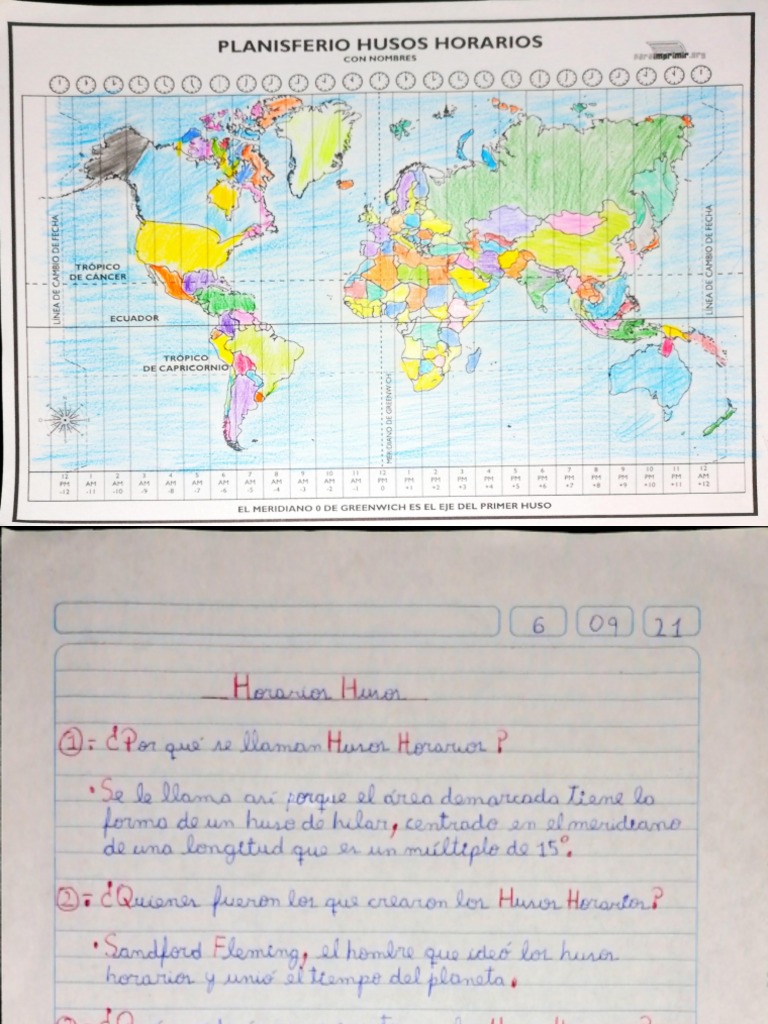 PLANISFERIO HUSOS HORARIOS
CON NOMBRES
paraimprimir.org
LÍNEA DE CAMBIO DE FECHA
LÍNEA DE CAMBIO DE FECHA
TRÓPICO
DE CÁNCER
ECUADOR
TRÓPICO
DE CAPRICORNIO
MERIDIANO DE GREENWICH
12 1 2 3 4 5 6 7 8 9 10 11 12 1 2 3 4 5 6 7 8 9 10 11 12
PM AM AM AM AM AM AM AM AM AM AM AM PM PM PM PM PM PM PM PM PM PM PM PM AM
-12 -11 -10 -9 -8 -7 -6 -5 -4 -3 -2 -1 0 +1 +2 +3 +4 +5 +6 +7 +8 +9 +10 +11 +12
EL MERIDIANO 0 DE GREENWICH ES EL EJE DEL PRIMER HUSO
6 09 21
Horarios Husos
1= ¿Por qué se llaman Husos Horarios?
• Se le llama así porque el área demarcada tiene la
forma de un huso de hilar, centrado en el meridiano
de una longitud que es un múltiplo de 15°.
2= ¿Quienes fueron los que crearon los Husos Horarios?
• Sandford Fleming, el hombre que ideó los husos
horarios y unió el tiempo del planeta.